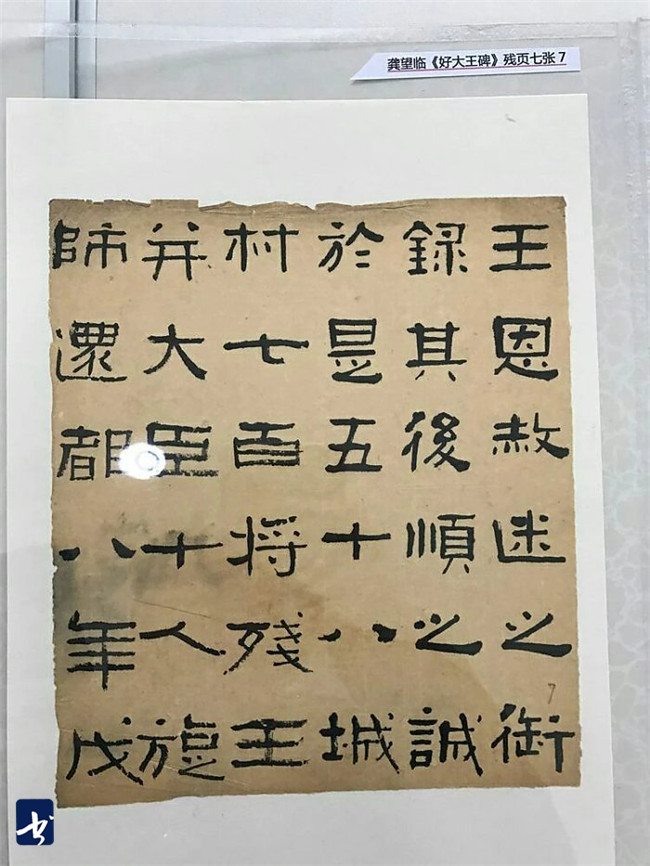 龚望临《好大王碑》残页七张 7
王恩赦迷之御
録其後順之誠
於是五十八城
村七百将殘王
并大臣十人旋
師還都八年戊
7